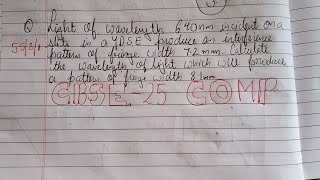 Q Light of wavelength 640nm incident on a
55/3/1 slits in a YDSE produce an interference
pattern of fringe width 7.2mm. Calculate
the wavelength of light which will produce
a pattern of fringe width 8.1mm
CBSE-25 COMP